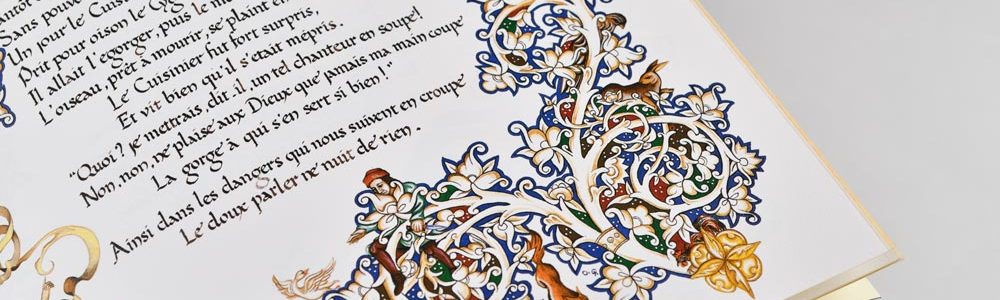 Sans pouv
Un jour le Cuisin
Prit pour oison le Cyg
Il allait l'égorger, puis le m
L'oiseau, prêt à mourir, se plaint en
Le Cuisinier fut fort surpris,
Et vit bien qu'il s'était mépris.
"Quoi? je mettrais, dit-il, un tel chanteur en soupe!
Non, non, ne plaise aux Dieux que jamais ma main coupe
La gorge à qui s'en sert si bien!"
Ainsi dans les dangers qui nous suivent en croupe
Le doux parler ne nuit de rien.